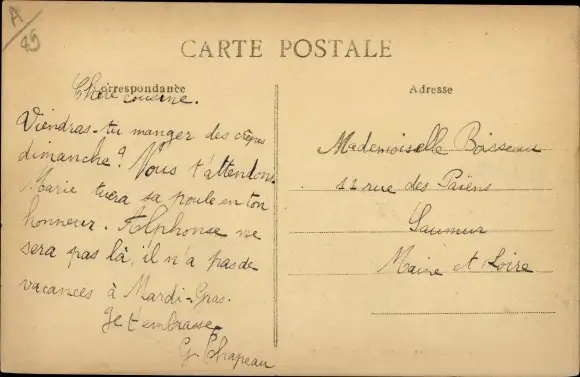 A/45
CARTE POSTALE
Correspondance
Adresse
Chère cousine.
Viendras-tu manger des crêpes
dimanche? Nous t'attendons.
Marie tuera sa poule en ton
honneur. Alphonse ne
sera pas là, il n'a pas de
vacances à Mardi-Gras.
Je t'embrasse
G. Chapeau
Mademoiselle Boisseau
11 rue des Païens
Saumur
Maine et Loire